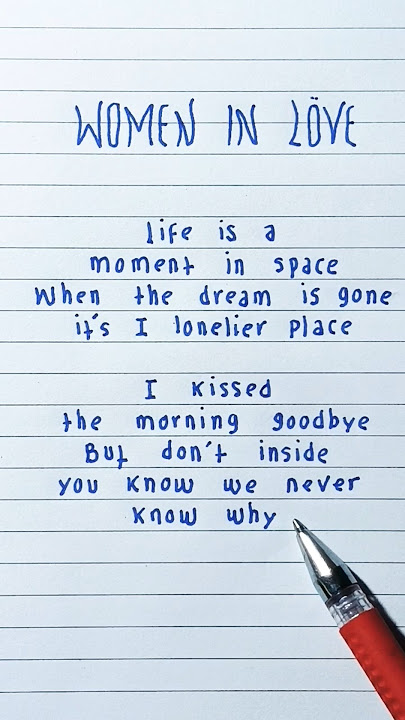 WOMEN IN LÖVE
life is a
moment in space
When the dream is gone
it's I lonelier place
I kissed
the morning goodbye
But don't inside
you know we never
know why